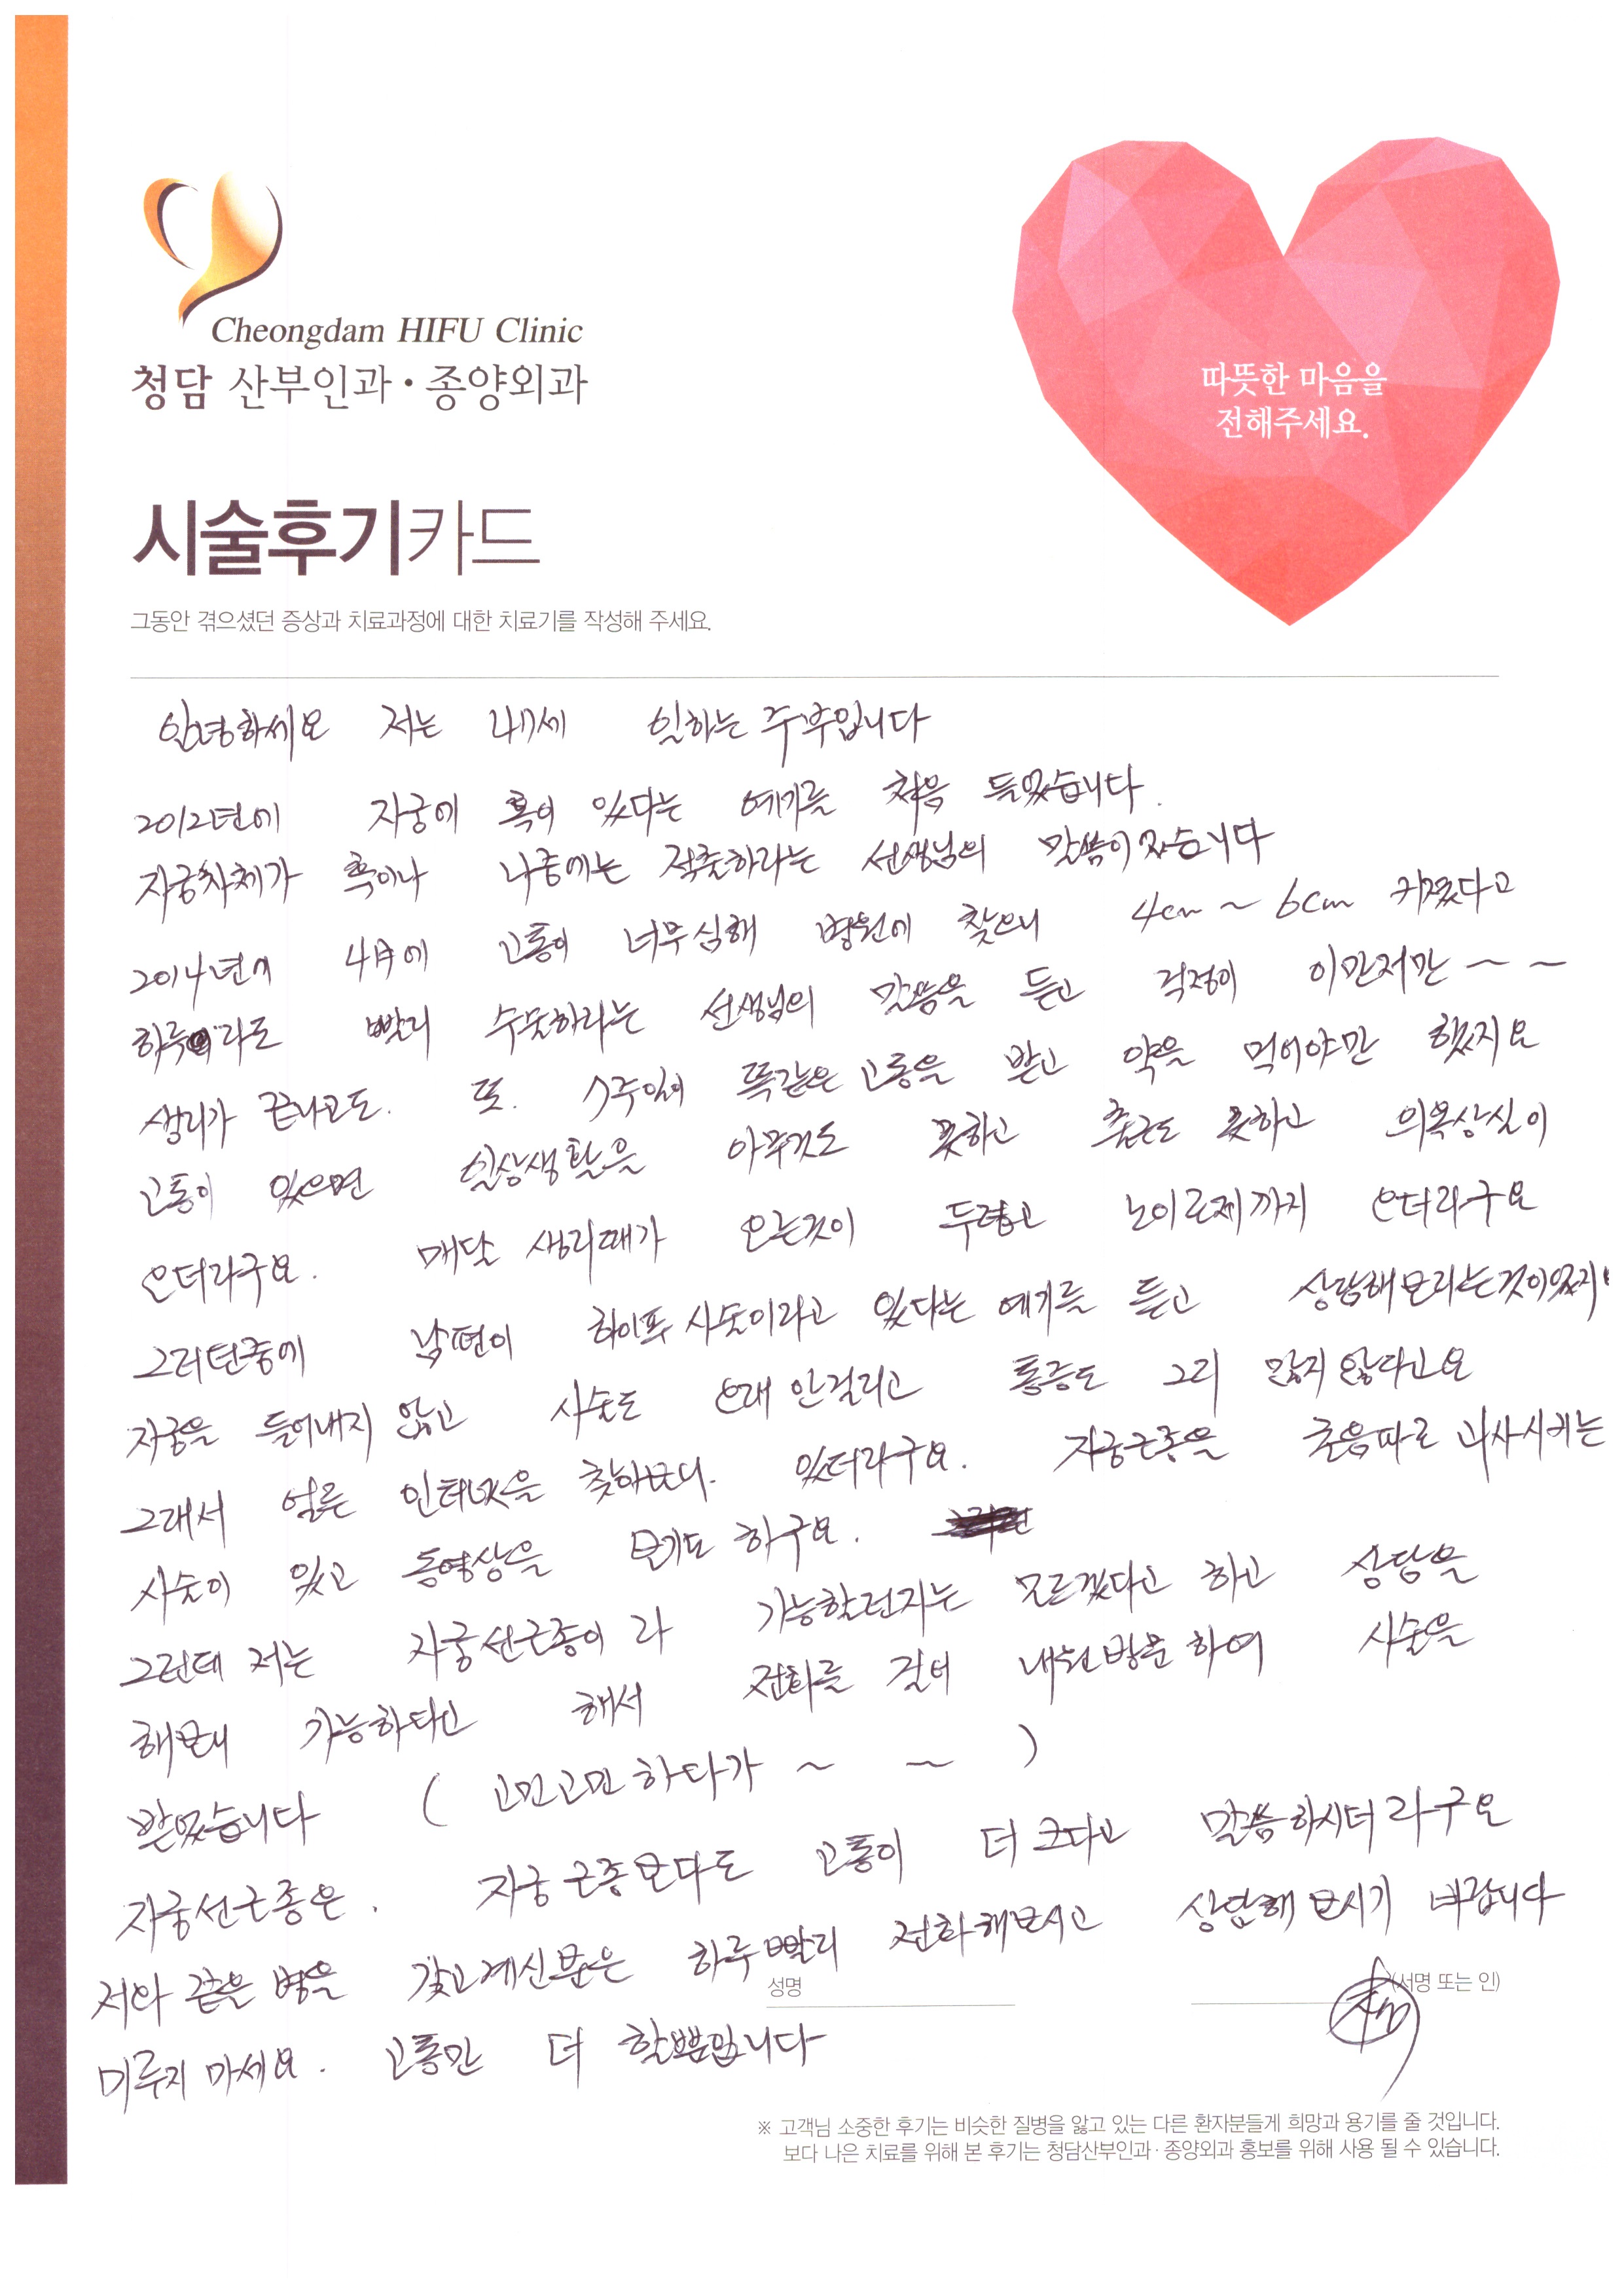 Cheongdam HIFU Clinic
청담 산부인과·종양외과
따뜻한 마음을
전해주세요.
시술후기카드
그동안 겪으셨던 증상과 치료과정에 대한 치료기를 작성해 주세요.
안녕하세요 저는 47세 일하는 주부입니다
2012년에 자궁에 혹이 있다는 얘기를 처음 들었습니다.
자궁자체가 혹이나 나중에는 적출하라는 선생님의 말씀이 있습니다
2014년에 4月에 고통이 너무 심해 병원에 찾으니 4cm ~ 6cm 커졌다고
하루라도 빨리 수술하라는 선생님의 말씀을 듣고 걱정이 이만저만 ~ ~
생리가 끝나고도. 또. 7주일이 똑같은 고통을 받고 약을 먹어야만 했지요
고통이 있으면 일상생활을 아무것도 못하고 출근도 못하고 의욕상실이
오더라구요. 매달 생리때가 오는것이 두렵고 노이로제까지 오더라구요
그러던중에 남편이 하이푸 시술이라고 있다는 얘기를 듣고 상담해보라는것이였지
자궁을 들어내지 않고 시술도 오래 안걸리고 통증도 그리 많지 않다고요
그래서 얼른 인터넷을 찾아보니. 있더라구요. 자궁근종을 초음파로 괴사시키는
시술이 있고 동영상을 보기도 하구요.
그런데 저는 자궁선근종이라 가능할런지는 모르겠다고 하고 상담을
해보니 가능하다고 해서 전화를 걸어 내원방문하여 시술을
받았습니다 ( 고민고민하다가 ~ ~ )
자궁선근종은. 자궁근종보다도 고통이 더 크다고 말씀하시더라구요
저와 같은 병을 갖고계신분은 하루빨리 전화해보시고 상담해 보시기 바랍니다
성명 (서명 또는 인)
미루지 마세요. 고통만 더 할뿐입니다
※ 고객님 소중한 후기는 비슷한 질병을 앓고 있는 다른 환자분들게 희망과 용기를 줄 것입니다.
보다 나은 치료를 위해 본 후기는 청담산부인과·종양외과 홍보를 위해 사용 될 수 있습니다.